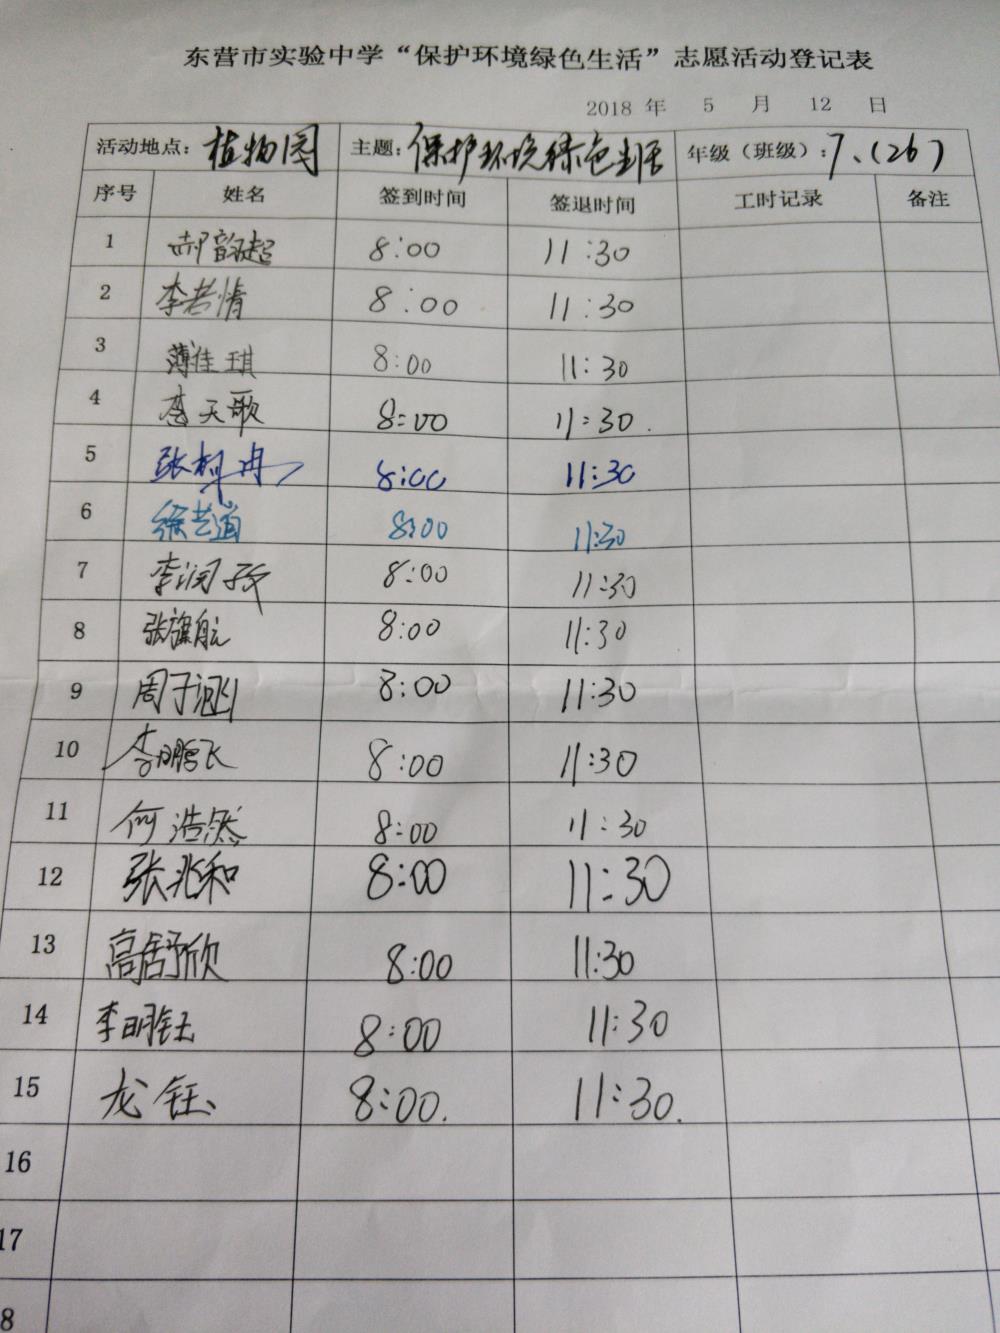 东营市实验中学“保护环境绿色生活”志愿活动登记表
2018 年 5 月 12 日
活动地点：植物园 主题：保护环境绿色生活 年级（班级）：7、（26）
序号 姓名 签到时间 签退时间 工时记录 备注
1 郝韵超 8:00 11:30
2 李若情 8:00 11:30
3 薄佳琪 8:00 11:30
4 李天歌 8:00 11:30.
5 张柯冉 8:00 11:30
6 徐艺道 8:00 11:30
7 李润 8:00 11:30
8 张旗航 8:00 11:30
9 周子涵 8:00 11:30
10 李鹏飞 8:00 11:30
11 何浩然 8:00 11:30
12 张兆和 8:00 11:30
13 高舒欣 8:00 11:30
14 李明钰 8:00 11:30
15 龙钰 8:00. 11:30.
16
17
8